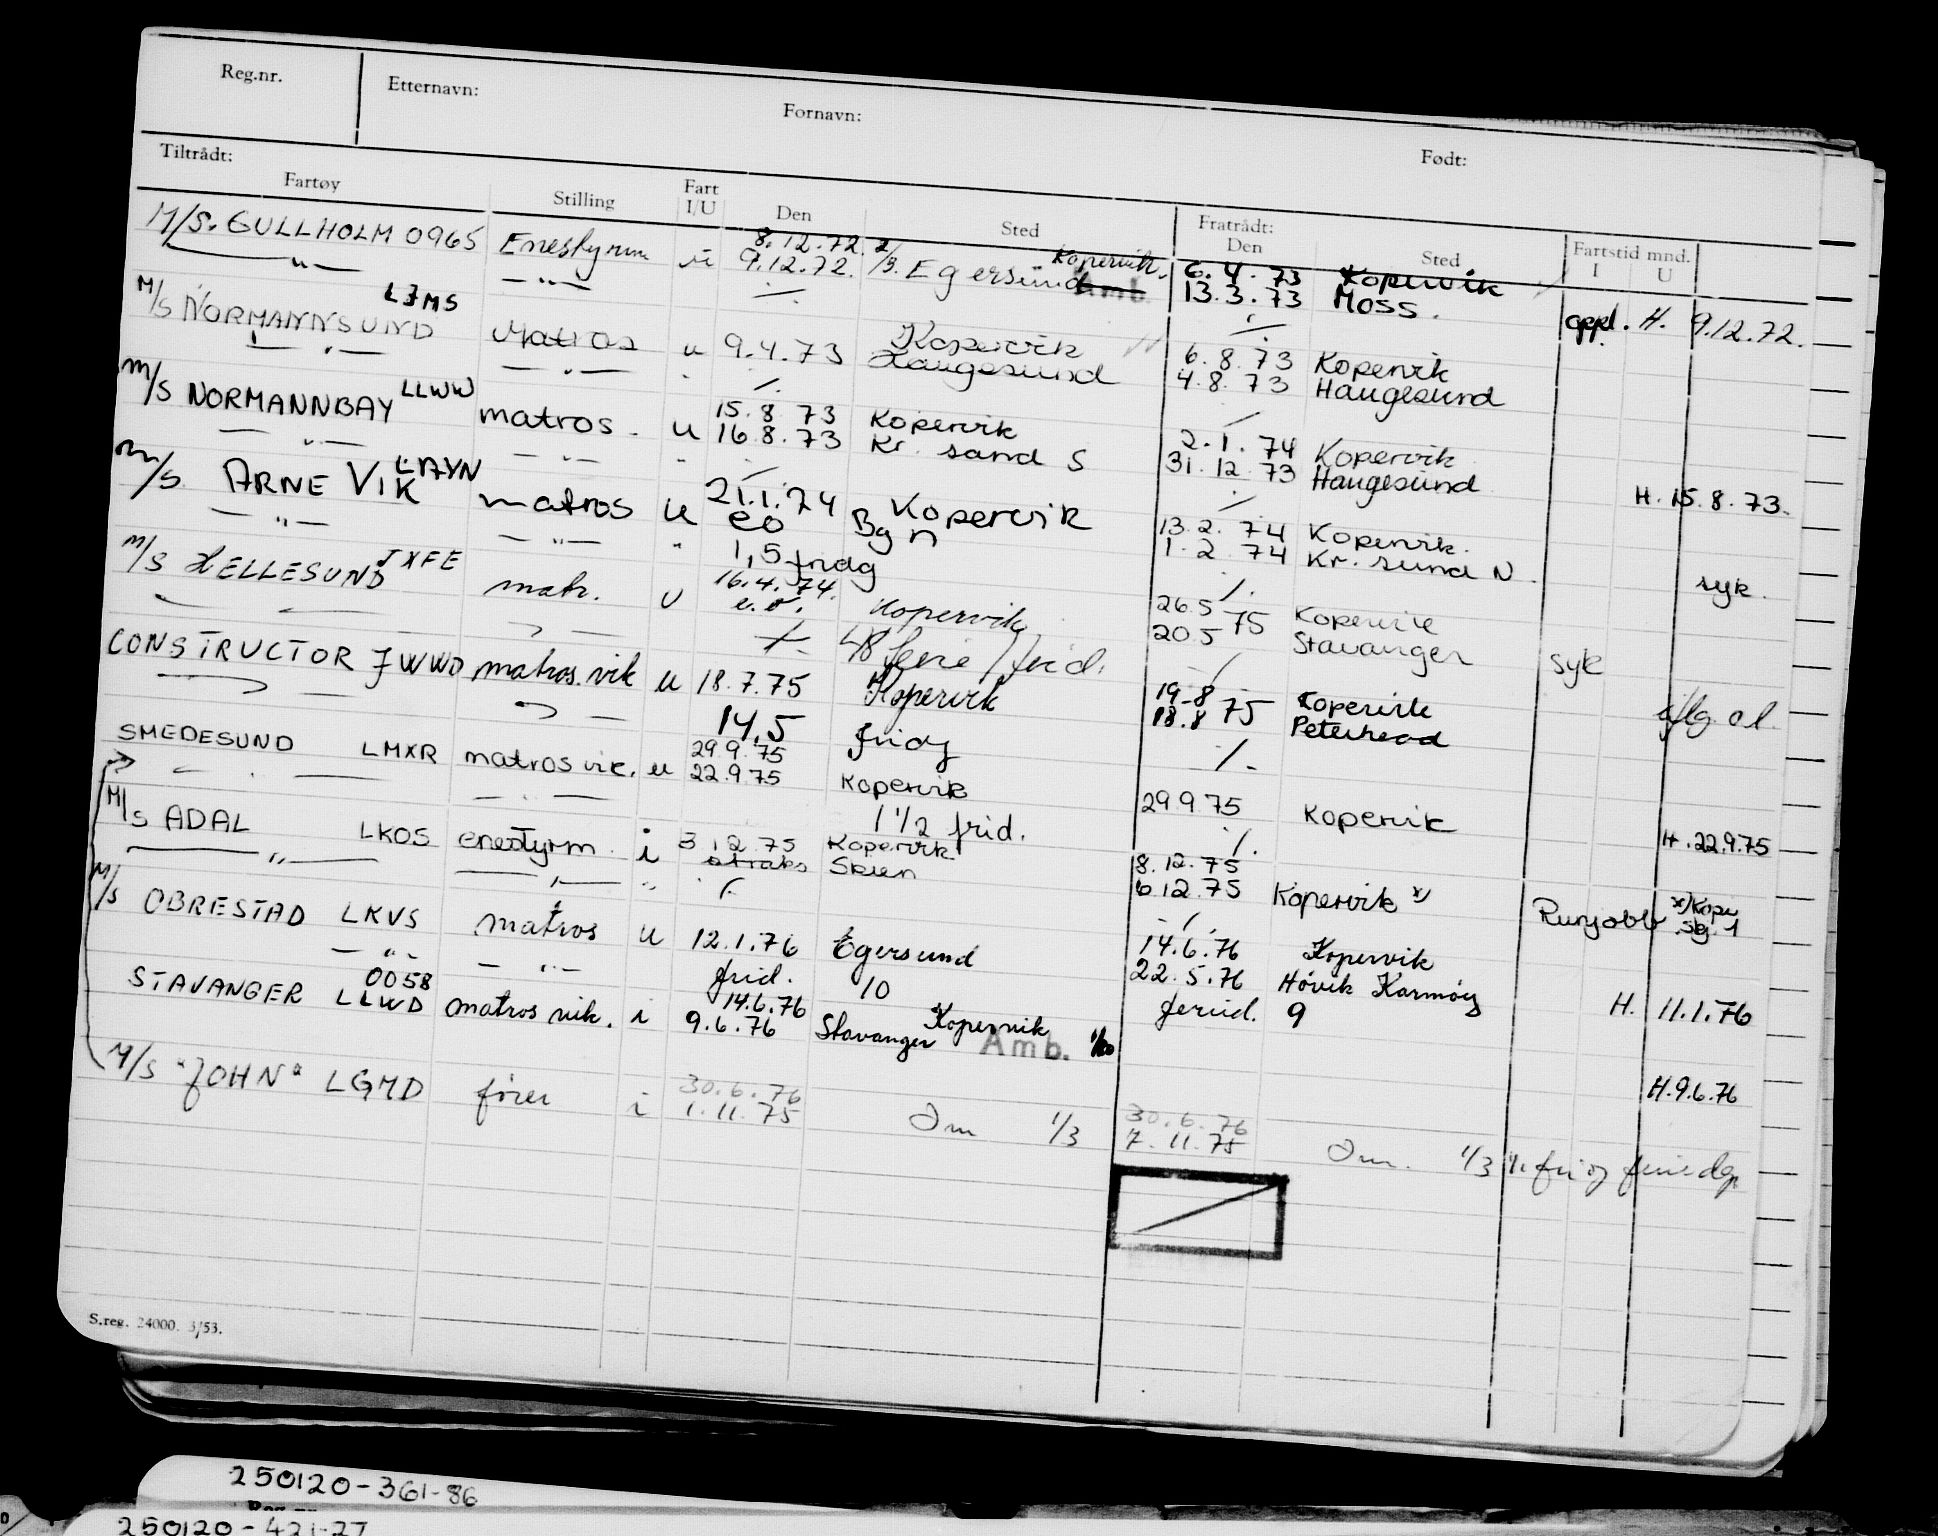 Reg.nr. Etternavn: Fornavn: Født:
Tiltrådt: Fratrådt:
Fartøy Stilling Fart I/U Den Sted Den Sted Fartstid mnd. I U
M/S. GULLHOLM 0965 Enestyrm i 8.12.72. Kopervik. 6.4.73 Kopervik
— " — — " — 9.12.72. Egersund Amb. 13.3.73 Moss. oppl. H. 9.12.72.
M/S NORMANNSUND LJMS Matros u 9.4.73 Kopervik 6.8.73 Kopervik
— " — — " — Haugesund 4.8.73 Haugesund
M/S NORMANNBAY LLWW matros. u 15.8.73 Kopervik 2.1.74 Kopervik
— " — — " — 16.8.73 Kr. sand S 31.12.73 Haugesund H. 15.8.73.
M/S. ARNE VIK LAYN matros u 21.1.74 Kopervik 13.2.74 Kopervik.
— " — — " — " eo Bgn 1.2.74 Kr. sund N. syk.
1,5 fridg
M/S HELLESUND JXFE matr. U 16.4.74. Kopervik 26.5 75 Kopervik
e.o. 20.5 Stavanger syk
48 ferie/frid.
CONSTRUCTOR JWWD matros.vik u 18.7.75 Kopervik 19.8 75 Kopervik
18.8 Peterhead
14,5 fridg
SMEDESUND LMXR matros vik. u 29.9.75 Kopervik 29.9.75 Kopervik
22.9.75 H. 22.9.75
1 1/2 frid.
M/S ADAL LKOS enestyrm. i 3.12.75 Kopervik 8.12.75
— " — — " — " straks Skien 6.12.75 Kopervik x) x)Kope
M/S OBRESTAD LKVS matros u 12.1.76 Egersund 14.6.76 Kopervik
— " — — " — 22.5.76 Høvik Karmøy H. 11.1.76
frid. 10 ferid. 9
STAVANGER 0058 LLWD matros vik. i 14.6.76 Kopervik
9.6.76 Stavanger Amb. H.9.6.76
M/S "JOHN" LGMD fører i 30.6.76 30.6.76
1.11.75 1/3 7.11.75 1/3
S.reg. 24000. 3/53.
250120-361-86
250120-421-27